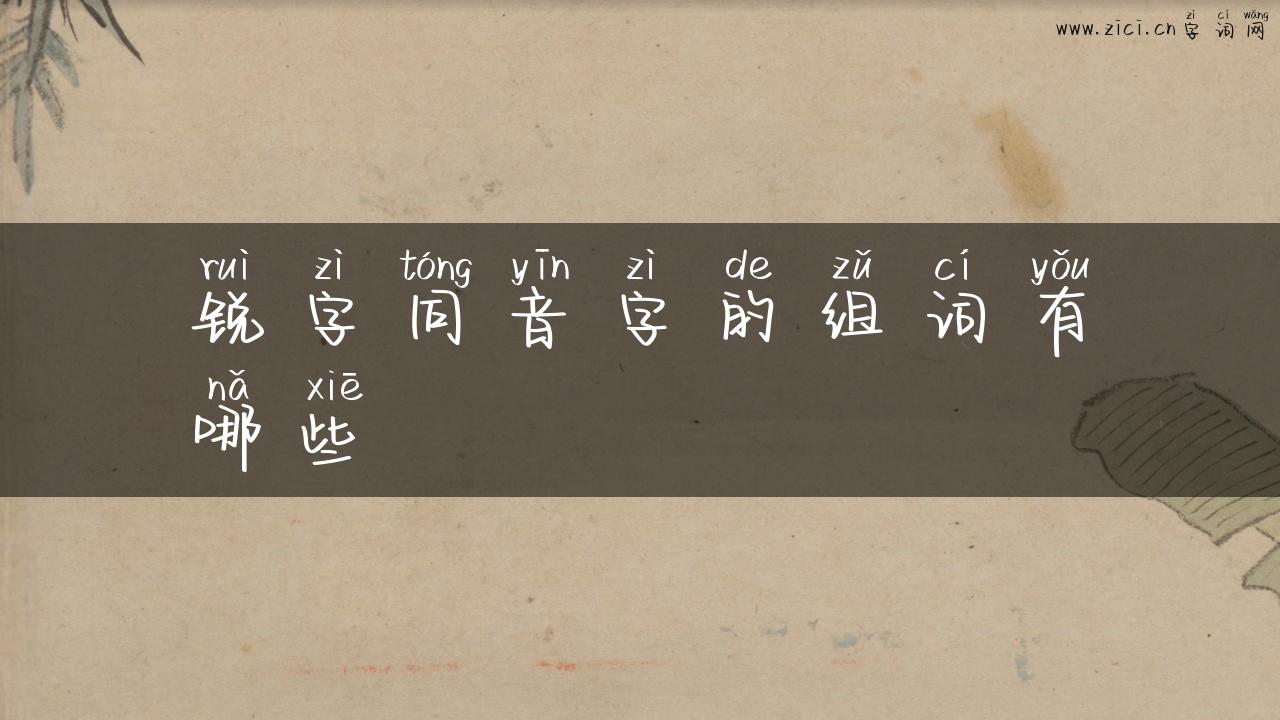 www.zici.cn 字词网
zì cí wǎng
ruì zì tóng yīn zì de zǔ cí yǒu
锐字同音字的组词有
nǎ xiē
哪些